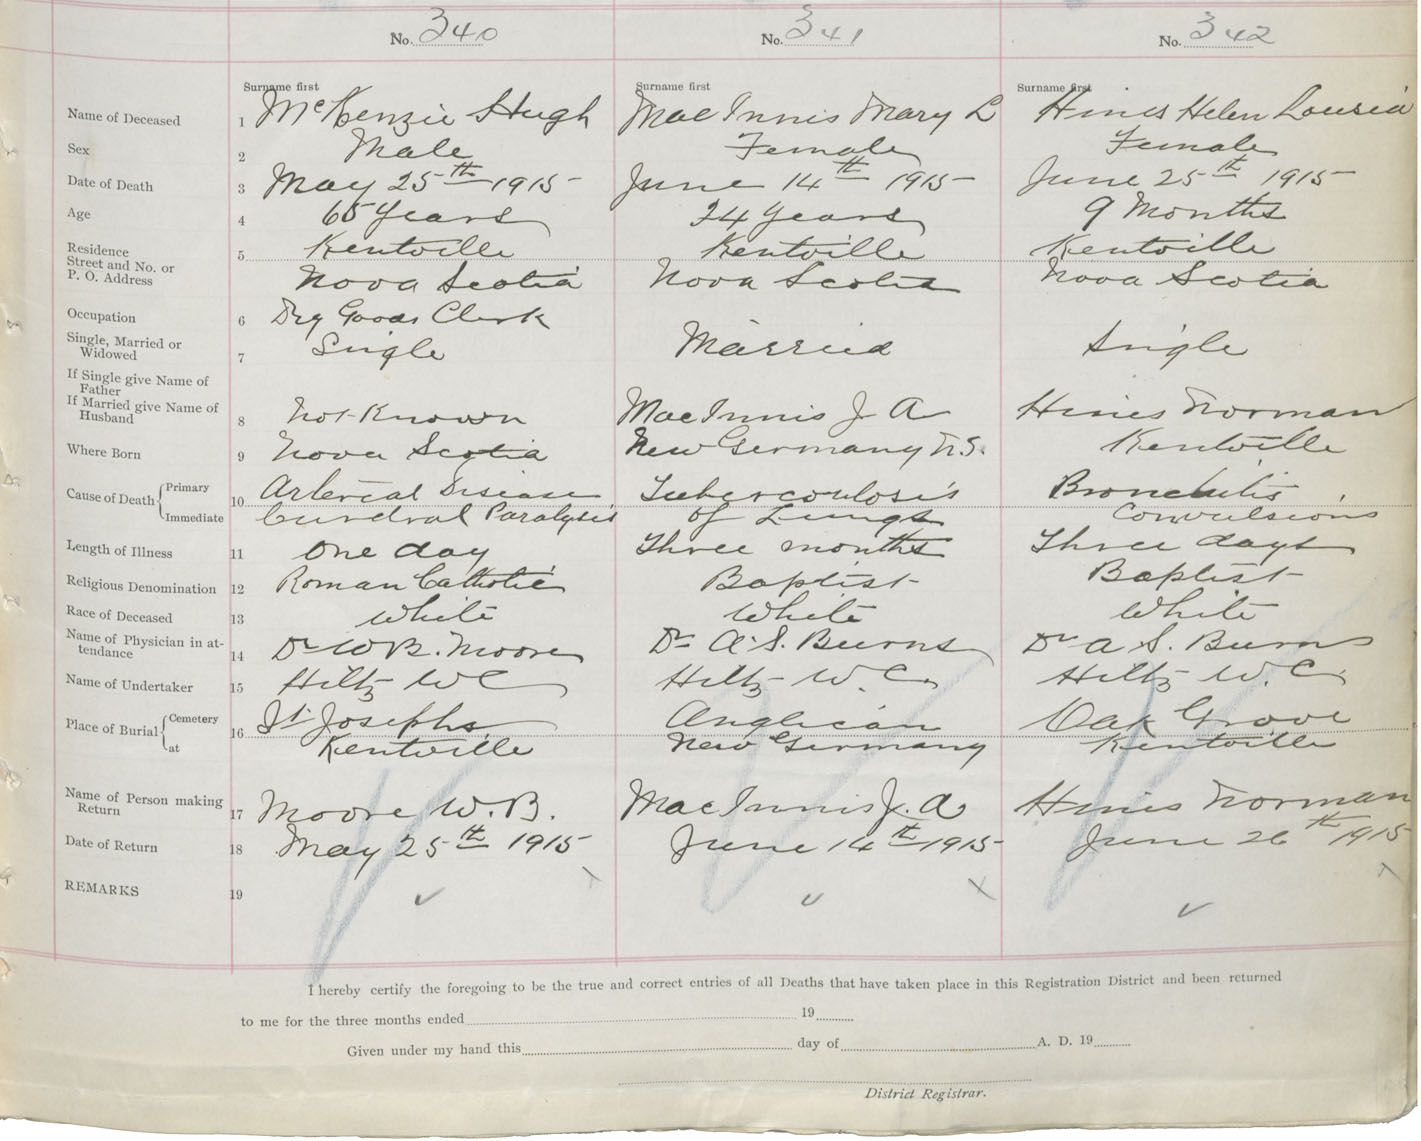 No. 340 No. 341 No. 342
Surname first Surname first Surname first
Name of Deceased 1 McKenzie Hugh MacInnis Mary L Hines Helen Lousia
Sex 2 Male Female Female
Date of Death 3 May 25th 1915 June 14th 1915 June 25th 1915
Age 4 65 Years 24 Years 9 Months
Residence 5 Kentville Kentville Kentville
Street and No. or
P. O. Address Nova Scotia Nova Scotia Nova Scotia
Occupation 6 Dry Goods Clerk
Single, Married or
Widowed 7 Single Married Single
If Single give Name of
Father
If Married give Name of
Husband 8 Not Known MacInnis J A Hines Norman
Where Born 9 Nova Scotia New Germany N.S. Kentville
Cause of Death Primary 10 Arterial Disease Tubercoulosis Bronchitis
Immediate Paralysis of Lungs Convulsions
Length of Illness 11 One day Three months Three days
Religious Denomination 12 Roman Catholic Baptist Baptist
Race of Deceased 13 White White White
Name of Physician in at-
tendance 14 Dr W B. Moore Dr A. S. Burns Dr A S. Burns
Name of Undertaker 15 Hiltz W C Hiltz W. C. Hiltz W. C.
Place of Burial Cemetery 16 St Josephs Anglican Oak Grove
at Kentville New Germany Kentville
Name of Person making
Return 17 Moore W. B. MacInnis J. A Hines Norman
Date of Return 18 May 25th 1915 June 14th 1915 June 26th 1915
REMARKS 19
I hereby certify the foregoing to be the true and correct entries of all Deaths that have taken place in this Registration District and been returned
to me for the three months ended 19
Given under my hand this day of A. D. 19
District Registrar.